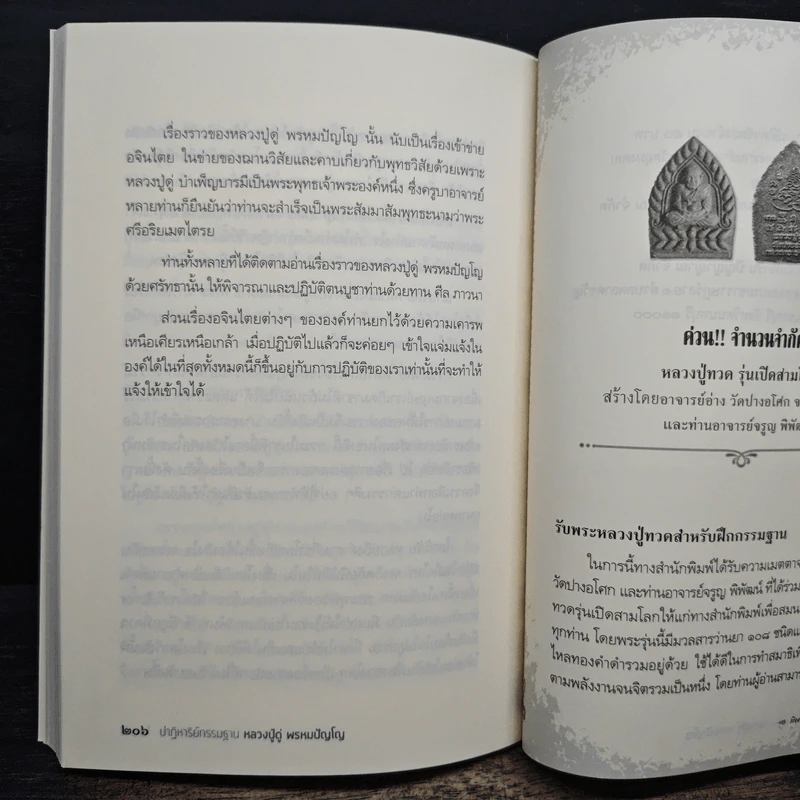 เรื่องราวของหลวงปู่ดู่ พรหมปัญโญ นั้น นับเป็นเรื่องเข้าข่าย
อจินไตย ในข่ายของฌานวิสัยและคาบเกี่ยวกับพุทธวิสัยด้วยเพราะ
หลวงปู่ดู่ บำเพ็ญบารมีเป็นพระพุทธเจ้าพระองค์หนึ่ง ซึ่งครูบาอาจารย์
หลายท่านก็ยืนยันว่าท่านจะสำเร็จเป็นพระสัมมาสัมพุทธะนามว่าพระ
ศรีอริยเมตไตรย
ท่านทั้งหลายที่ได้ติดตามอ่านเรื่องราวของหลวงปู่ดู่ พรหมปัญโญ
ด้วยศรัทธานั้น ให้พิจารณาและปฏิบัติตนบูชาท่านด้วยทาน ศีล ภาวนา
ส่วนเรื่องอจินไตยต่างๆ ขององค์ท่านยกไว้ด้วยความเคารพ
เหนือเศียรเหนือเกล้า เมื่อปฏิบัติไปแล้วก็จะค่อยๆ เข้าใจแจ่มแจ้งใน
องค์ได้ในที่สุดทั้งหมดนี้ก็ขึ้นอยู่กับการปฏิบัติของเราเท่านั้นที่จะทำให้
แจ้งให้เข้าใจได้
๒๐๖ ปาฏิหาริย์กรรมฐาน หลวงปู่ดู่ พรหมปัญโญ
ด่วน!! จำนวนจำกัด
หลวงปู่ทวด รุ่นเปิดสามโ
สร้างโดยอาจารย์อ่าง วัดปางอโศก จ
และท่านอาจารย์จรูญ พิพัฒ
รับพระหลวงปู่ทวดสำหรับฝึกกรรมฐาน
ในการนี้ทางสำนักพิมพ์ได้รับความเมตตาจ
วัดปางอโศก และท่านอาจารย์จรูญ พิพัฒน์ ที่ได้ร่วม
ทวดรุ่นเปิดสามโลกให้แก่ทางสำนักพิมพ์เพื่อสมน
ทุกท่าน โดยพระรุ่นนี้มีมวลสารว่านยา ๑๐๘ ชนิดแ
ไหลทองคำดำรวมอยู่ด้วย ใช้ได้ดีในการทำสมาธิเพ
ตามพลังงานจนจิตรวมเป็นหนึ่ง โดยท่านผู้อ่านสามาร